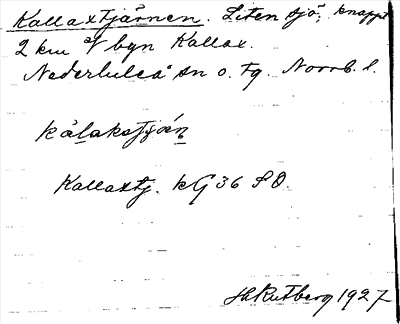 Kallaxtjärnen. Liten sjö, knappt
2 km V byn Kallax.
Nederluleå sn o. tg. Norrb. l.
kálakstjǫ́n̥
Kallaxtj. kG 36 SO.
H Rutberg 1927